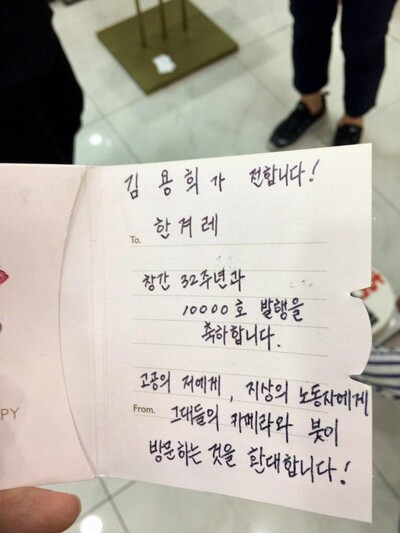 김 용 희 가 전합니다!
To. 한 겨 레
창간 32주년과
10000호 발행을
축하합니다.
고공의 저에게, 지상의 노동자에게
From. 그대들의 카메라와 붓이
방문하는 것을 환대합니다!
PY